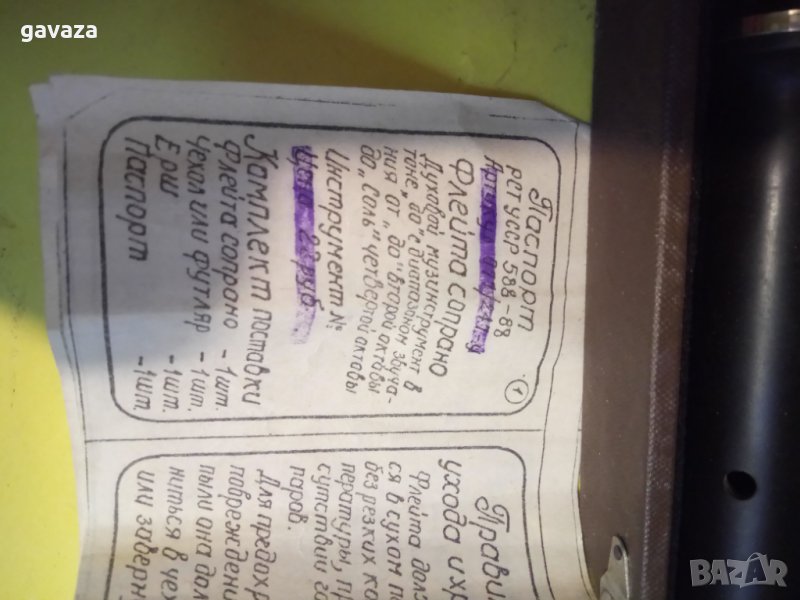 gavaza
Паспорт
РСТ УССР 588-88
Флейта сопрано
Духовой музинструмент в
тоне „до" с диапазоном звуча-
ния от „до" второй октавы
до „соль" четвертой октавы
Инструмент №
Цена 22 руб
Комплект поставки
Флейта сопрано - 1шт.
Чехол или футляр - 1шт.
Ерш - 1шт.
Паспорт - 1шт.
1
Прави
ухода и хр
Флейта дол
ся в сухом п
без резких ко
пературы, пр
сутствии га
паров.
Для предохр
повреждени
пыли она дол
ниться в чех
или заверн
BAZAR